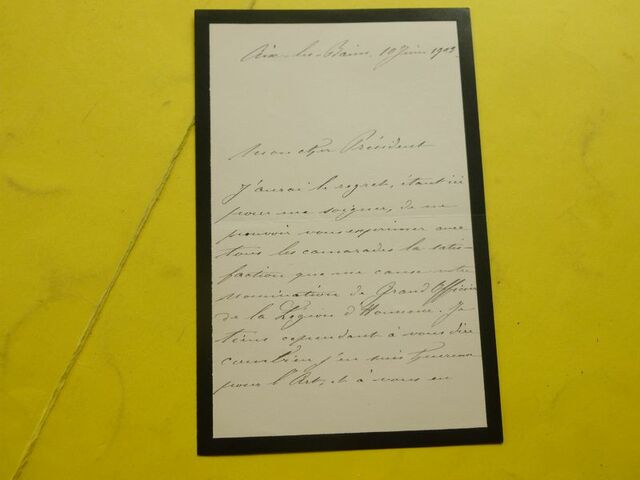 Aix-les-Bains, 19 Juin 1903
Mon cher Président
J'aurai le regret, étant ici
pour me soigner, de ne
pouvoir vous exprimer avec
tous les camarades la satis-
faction que me cause votre
nomination de Grand Officier
de la Légion d'Honneur. Je
tiens cependant à vous dire
combien j'en suis heureux
pour l'Art, et à vous en